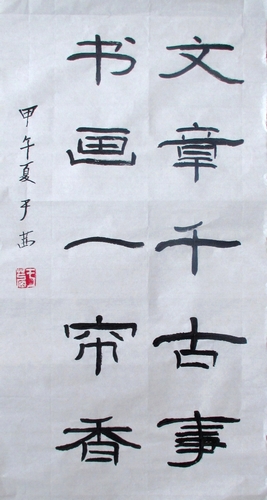 文章千古事
书画一帘香
甲午夏于茜